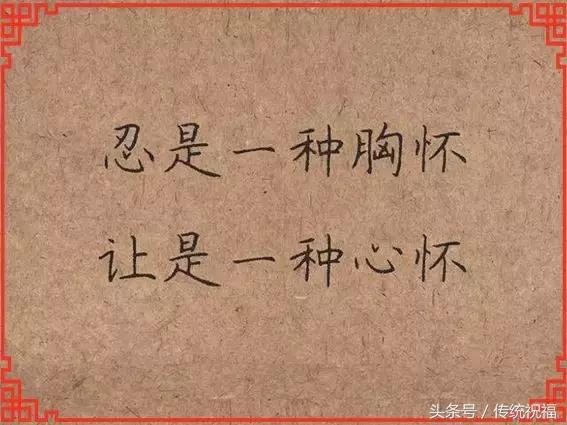 忍是一种胸怀
让是一种心怀
头条号／传统祝福